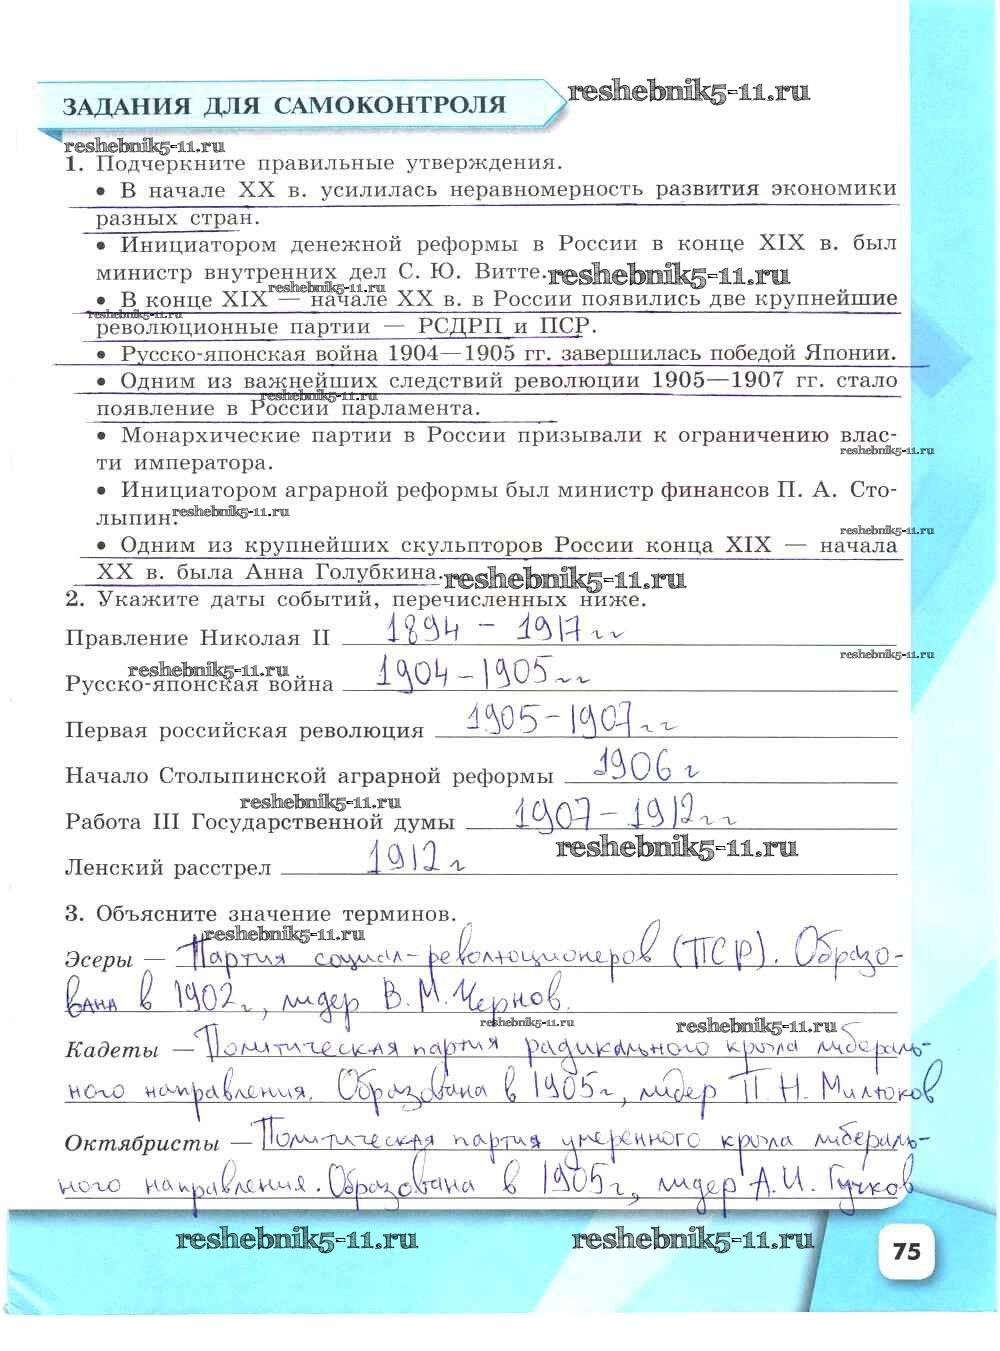 ЗАДАНИЯ ДЛЯ САМОКОНТРОЛЯ
reshebnik5-11.ru
reshebnik5-11.ru
1. Подчеркните правильные утверждения.
• В начале XX в. усилилась неравномерность развития экономики
разных стран.
• Инициатором денежной реформы в России в конце XIX в. был
министр внутренних дел С. Ю. Витте.
reshebnik5-11.ru
reshebnik5-11.ru
• В конце XIX — начале XX в. в России появились две крупнейшие
reshebnik5-11.ru
революционные партии — РСДРП и ПСР.
• Русско-японская война 1904—1905 гг. завершилась победой Японии.
• Одним из важнейших следствий революции 1905—1907 гг. стало
reshebnik5-11.ru
появление в России парламента.
• Монархические партии в России призывали к ограничению влас-
reshebnik5-11.ru
ти императора.
• Инициатором аграрной реформы был министр финансов П. А. Сто-
лыпин.
reshebnik5-11.ru
reshebnik5-11.ru
• Одним из крупнейших скульпторов России конца XIX — начала
XX в. была Анна Голубкина.
reshebnik5-11.ru
2. Укажите даты событий, перечисленных ниже.
Правление Николая II 1894 - 1917 гг
reshebnik5-11.ru
reshebnik5-11.ru
Русско-японская война 1904-1905 гг
Первая российская революция 1905-1907 гг
Начало Столыпинской аграрной реформы 1906 г
reshebnik5-11.ru
Работа III Государственной думы 1907-1912 гг
reshebnik5-11.ru
Ленский расстрел 1912 г
3. Объясните значение терминов.
reshebnik5-11.ru
Эсеры — Партия социал-революционеров (ПСР). Образо-
вана в 1902 г, лидер В.М.Чернов.
reshebnik5-11.ru
reshebnik5-11.ru
Кадеты — Политическая партия радикального крыла либераль-
ного направления. Образована в 1905 г, лидер П.Н.Милюков
Октябристы — Политическая партия умеренного крыла либераль-
ного направления. Образована в 1905 г, лидер А.И. Гучков
reshebnik5-11.ru
reshebnik5-11.ru
75